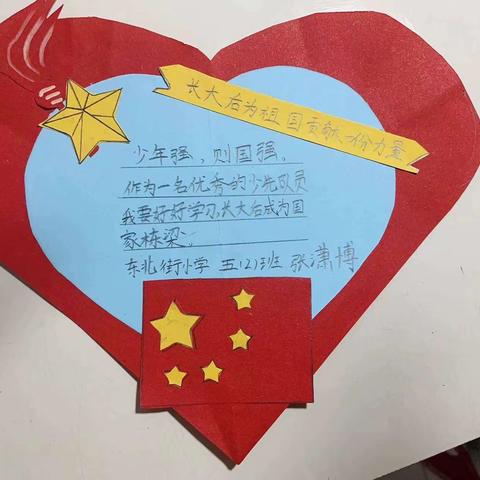 长大后为祖国贡献一份力量
少年强，则国强。
作为一名优秀的少先队员
我要好好学习，长大后成为国
家栋梁。
东北街小学 五（2）班 张潇博